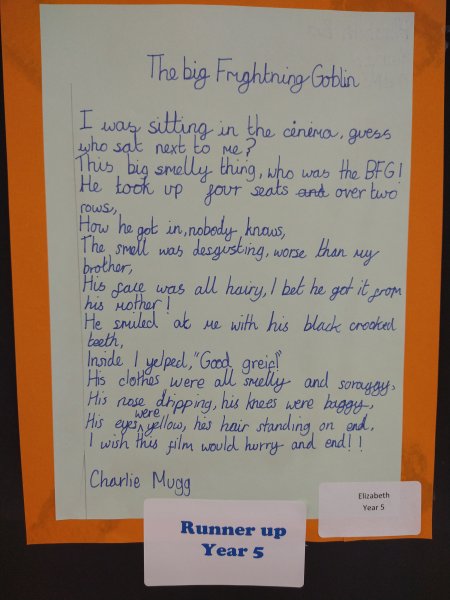 The big Frightning Goblin
I was sitting in the cinema, guess
who sat next to me?
This big smelly thing, who was the BFG!
He took up four seats and over two
rows,
How he got in, nobody knows,
The smell was desgusting, worse than my
brother,
His face was all hairy, I bet he got it from
his mother!
He smiled at me with his black crooked
teeth,
Inside I yelped, "Good greif!"
His clothes were all smelly and scraggy,
His nose dripping, his knees were baggy,
His eyes were yellow, his hair standing on end,
I wish this film would hurry and end!!
Charlie Mugg
Elizabeth
Year 5
Runner up
Year 5